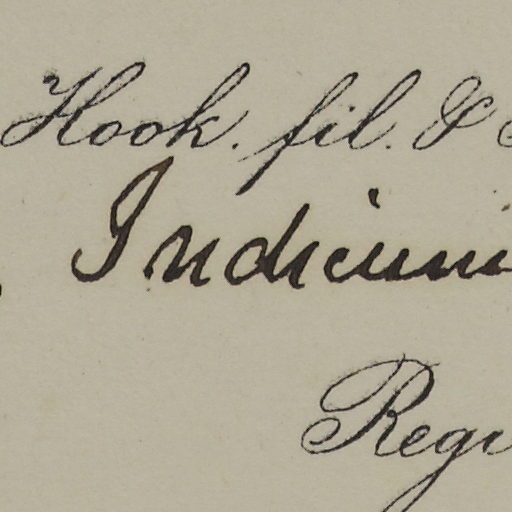 Hook. fil. &
Indicum
Regi